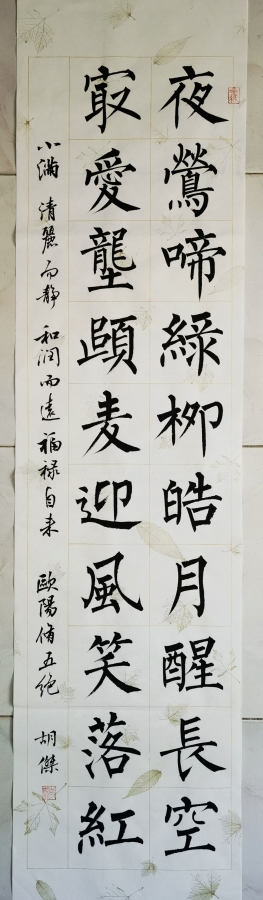 夜鶯啼綠柳皓月醒長空
寂愛壟頭麦迎風笑落紅
小滿 清麗而静 和潤而遠 福祿自来 歐陽脩五绝 胡傑